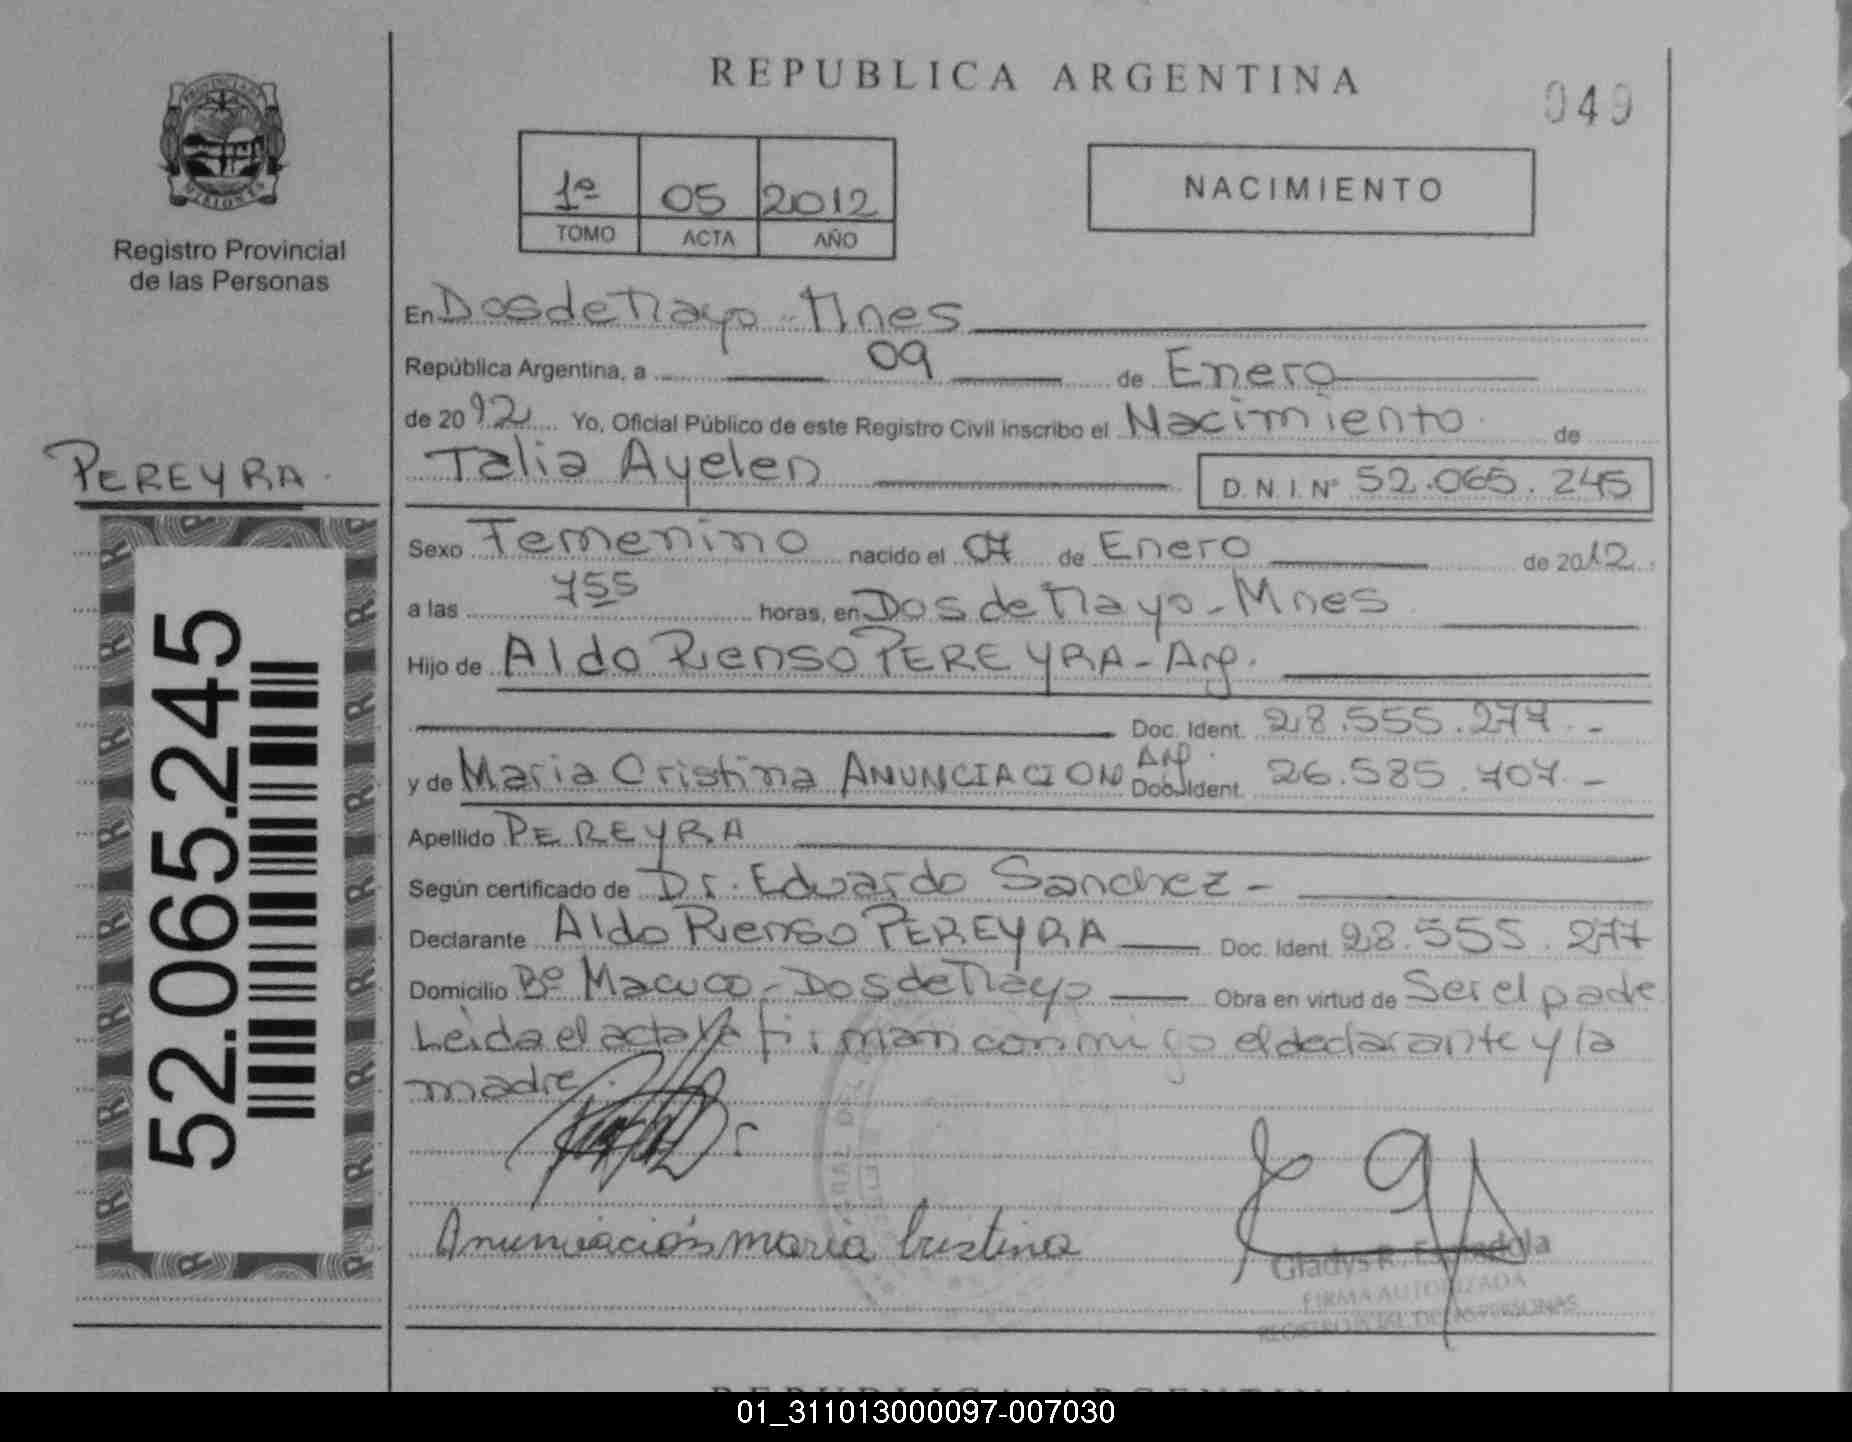 REPUBLICA ARGENTINA
049
PROVINCIA DE MISIONES
Registro Provincial
de las Personas
1º 05 2012
TOMO ACTA AÑO
NACIMIENTO
En Dos de Mayo - Mnes
República Argentina, a 09 de Enero
de 2012 Yo, Oficial Público de este Registro Civil inscribo el Nacimiento de
PEREYRA
Talia Ayelen D.N.I. Nº 52.065.245
Sexo Femenino nacido el 07 de Enero de 2012
a las 755 horas, en Dos de Mayo - Mnes
Hijo de Aldo Rienso PEREYRA - Arg.
Doc. Ident. 28.555.277 -
y de Maria Cristina ANUNCIACION Arg. Doc. Ident. 26.585.707 -
Apellido PEREYRA
Según certificado de Dr. Eduardo Sanchez -
Declarante Aldo Rienso PEREYRA Doc. Ident. 28.555.277
Domicilio Bº Macuco - Dos de Mayo Obra en virtud de Ser el padre
Leida el acta la firman conmigo el declarante y la
madre.
52.065.245
Anunciación maria Cristina
Gladys R.
FIRMA AUTORIZADA
REGISTRO PCIAL. DE LAS PERSONAS
REPUBLICA ARGENTINA
01_311013000097-007030